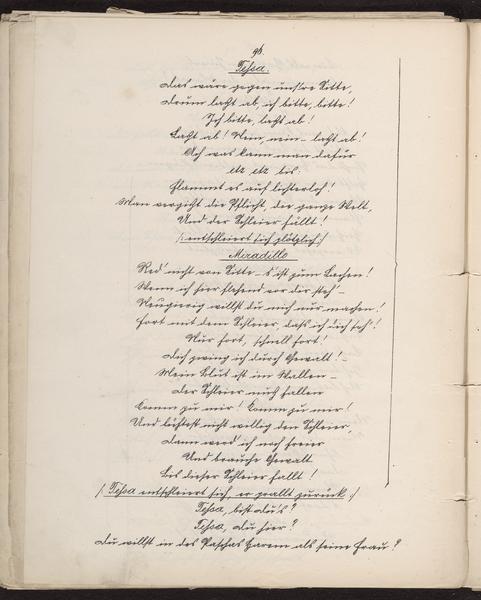 96.
Tessa.
Das wäre gegen uns're Sitte,
Drum laßt ab, ich bitte, bitte!
Ich bitte, laßt ab!
Laßt ab! Nein, nein – laßt ab!
Ach was kann man dafür
etz etz bis:
flammt es auf lichterloh!
Man vergißt die Pflicht die ganze Welt,
Und der Schleier fällt!
/: entschleiert sich plötzlich :/
Miradillo
Red' nicht von Sitte – 's ist zum Lachen!
Wenn ich hier flehend vor dir steh' –
Neugierig willst du mich nur machen!
Fort mit dem Schleier, dass ich dich seh'!
Nur fort, schnell fort!
Dich zwing ich durch Gewalt! –
Mein Blut ist im Wallen –
Der Schleier muß fallen
Komm zu mir! Komm zu mir!
Und lüftest nicht willig den Schleier,
Dann werd ich noch freier
Und brauche Gewalt
Bis dieser Schleier fällt!
/: Tessa entschleiert sich, er prallt zurück :/
Tessa, bist du's?
Tessa, du hier?
Du willst in des Paschas Harem als seine Frau?